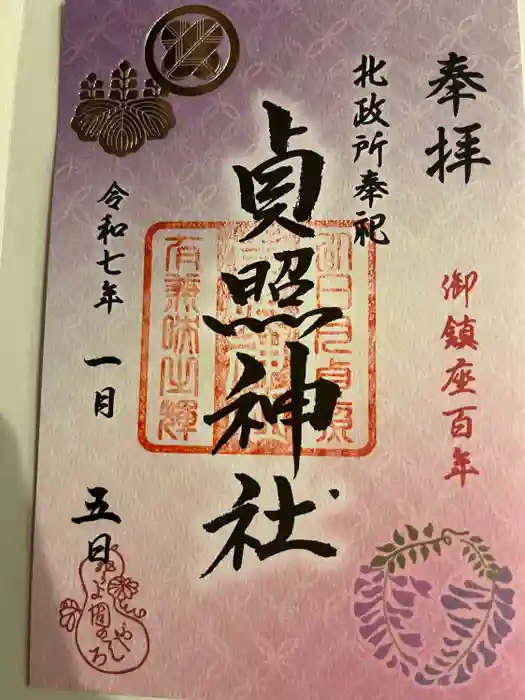 奉拝
御鎮座百年
北政所奉祀
貞照神社
令和七年 一月 五日